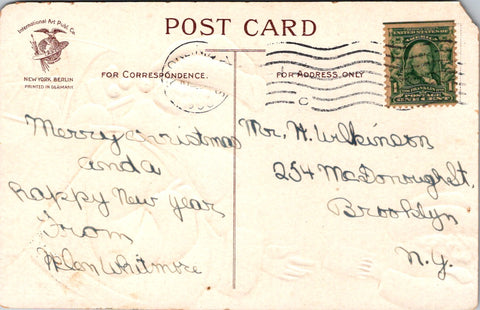 International Art Publ. Co.
NEW YORK. BERLIN
PRINTED IN GERMANY
POST CARD
FOR CORRESPONDENCE.
FOR ADDRESS ONLY
C
UNITED STATES OF
AMERICA
1 ONE CENT 1
Merry Christmas
and a
happy New Year
From
Helen Whitmore
Mr. H. Wilkinson
254 MacDonough St.
Brooklyn
N.Y.